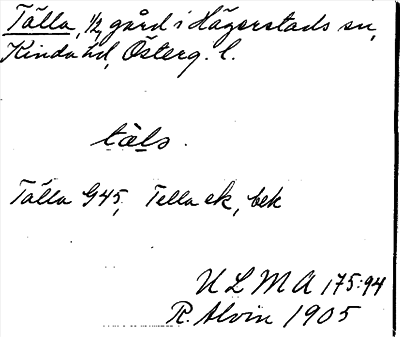 Tälla, 1/2 gård i Hägerstads sn,
Kinda hd, Österg. l.
täls.
Tälla G45, Tella ek, bek
ULMA 175:94
R. Alvin 1905